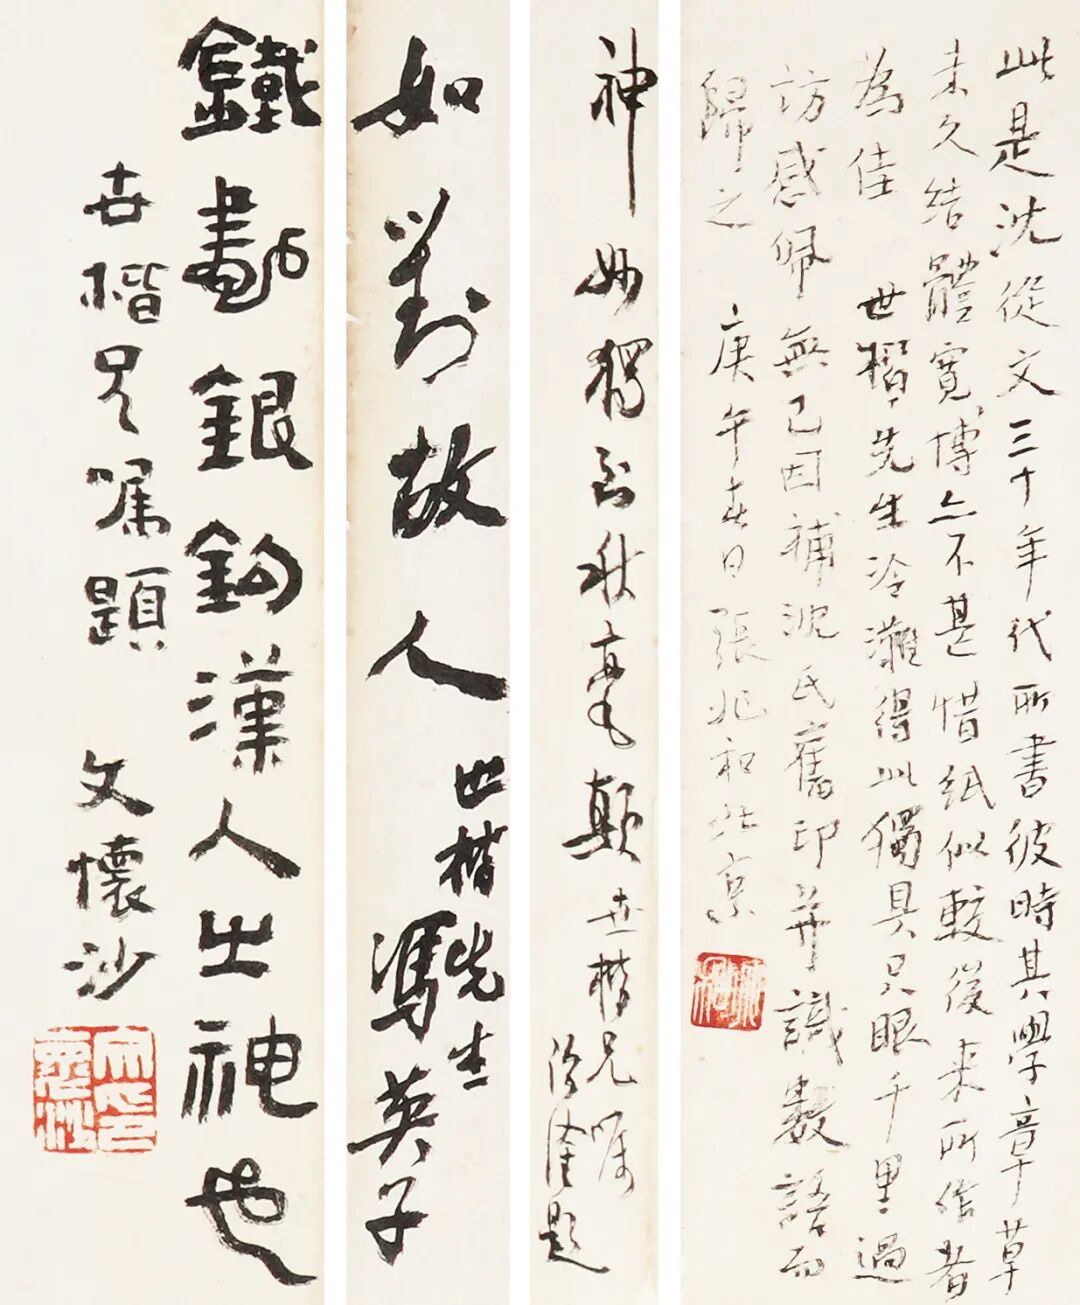 此是沈從文三十年代所書彼時其學章草
未久結體寬博亦不甚惜紙似較後來所作者
為佳 世楷先生冷灘得此獨具只眼千里過
訪感佩無已因補沈氏舊印并識數語而
歸之 庚午春日張兆和北京
神妙獨到秋毫顛
世楷兄囑
題
如對故人
世楷先生
馮英子
鐵畫銀鉤漢人之神也
世楷兄囑題 文懷沙